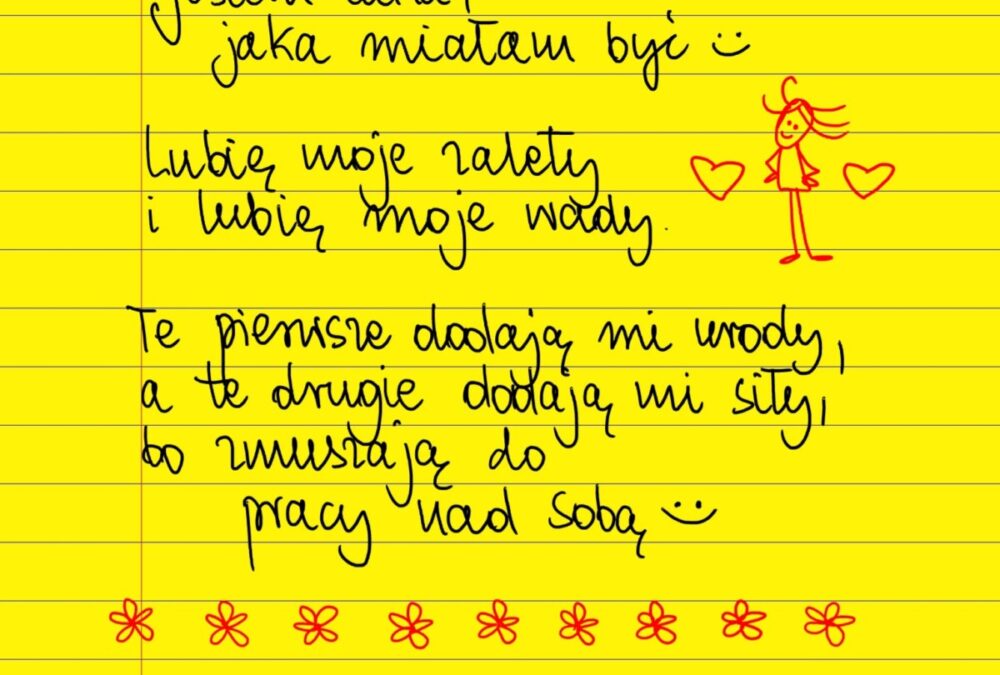 jaka miałam być
Lubię moje zalety
i lubię moje wady.
Te pierwsze dodają mi urody,
a te drugie dodają mi siły,
bo zmuszają do
pracy nad sobą